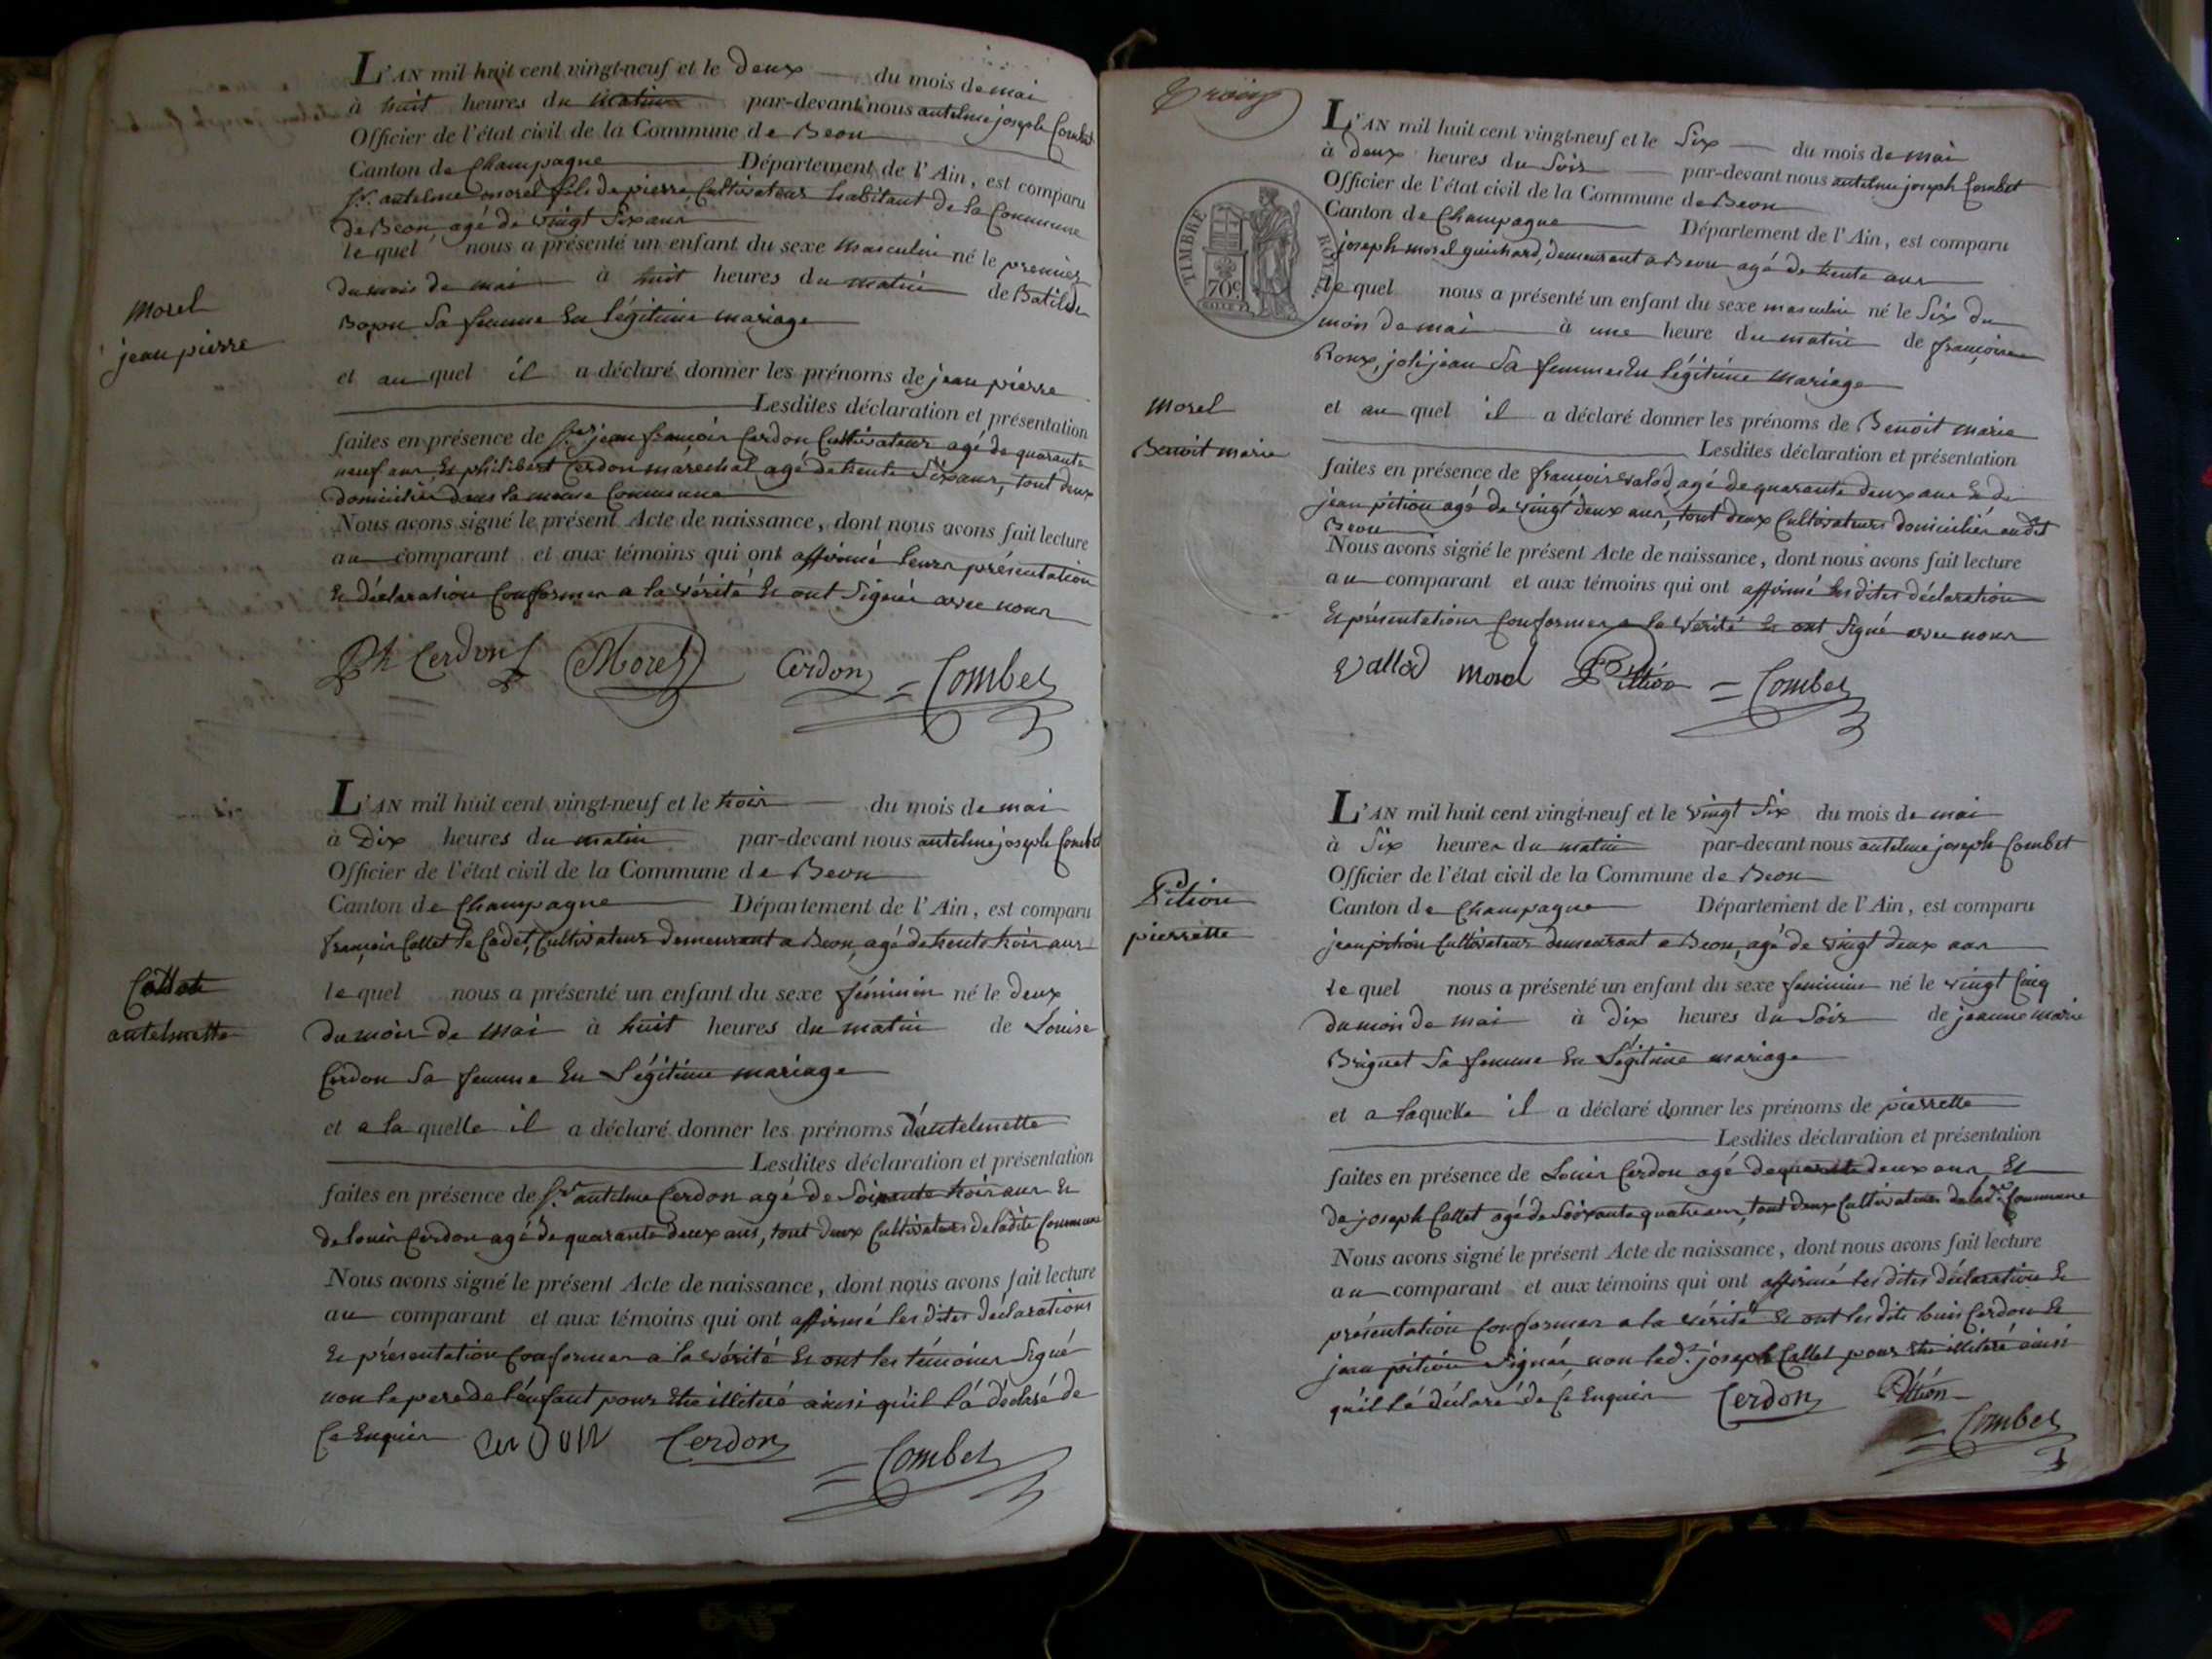 L'AN mil huit cent vingt-neuf et le deux du mois de mai
à huit heures du matin par-devant nous antelme joseph Combet
Officier de l'état civil de la Commune de Beon
Canton de Champagne Département de l'Ain, est comparu
Sr. antelme morel fils de pierre Cultivateur habitant de la Commune
de Beon agé de vingt six ans
le quel nous a présenté un enfant du sexe masculin né le premier
du mois de mai à huit heures du matin de Batilde
sa femme En légitime mariage
morel
jean pierre
et au quel il a déclaré donner les prénoms de jean pierre
Lesdites déclaration et présentation
faites en présence de Sr. jean françois Cerdon Cultivateur agé de quarante
neuf ans, Et philibert Cerdon maréchal agé de trente Six ans, tout deux
domiciliés dans la meme Commune
Nous avons signé le présent Acte de naissance, dont nous avons fait lecture
au comparant et aux témoins qui ont affirmé leurs présentation
Et déclaration Conformes a la vérité Et ont Signés avec nous
Ph Cerdon Morel Cerdon = Combet
L'AN mil huit cent vingt-neuf et le trois du mois de mai
à Dix heures du matin par-devant nous antelme joseph Combet
Officier de l'état civil de la Commune de Beon
Canton de Champagne Département de l'Ain, est comparu
françois Collet le Cadet, Cultivateur demeurant a Beon, agé de trente trois ans
Collet
antelmette
le quel nous a présenté un enfant du sexe féminin né le deux
du mois de mai à huit heures du matin de Louise
Cerdon Sa femme En Légitime mariage
et a la quelle il a déclaré donner les prénoms d'antelmette
Lesdites déclaration et présentation
faites en présence de Sr. antelme Cerdon agé de Soixante trois ans Et
de louis Cerdon agé de quarante deux ans, tout deux Cultivateurs de ladite Commune
Nous avons signé le présent Acte de naissance, dont nous avons fait lecture
au comparant et aux témoins qui ont affirmé les dites déclarations
Et présentation Conformes a la vérité Et ont les témoins Signé
non le pere de l'enfant pour Etre illitéré ainsi qu'il l'a déclaré de
Ce Enquis Cerdon Cerdon = Combet
Trois
L'AN mil huit cent vingt-neuf et le Six du mois de mai
à deux heures du Soir par-devant nous antelme joseph Combet
Officier de l'état civil de la Commune de Beon
Canton de Champagne Département de l'Ain, est comparu
TIMBRE ROYAL
70c
joseph morel guichard, demeurant a Beon agé de trente ans
le quel nous a présenté un enfant du sexe masculin né le Six du
mois de mai à une heure du matin de françoise
Roux, joli jean Sa femme En légitime mariage
morel
Benoit marie
et au quel il a déclaré donner les prénoms de Benoit marie
Lesdites déclaration et présentation
faites en présence de françois valod, agé de quarante deux ans Et de
jean pition agé de vingt deux ans, tout deux Cultivateurs domiciliés audit
Beon
Nous avons signé le présent Acte de naissance, dont nous avons fait lecture
au comparant et aux témoins qui ont affirmé les dites déclaration
Et présentations Conformes a la vérité Et ont Signé avec nous
Vallod Morel Pittion = Combet
L'AN mil huit cent vingt-neuf et le vingt Six du mois de mai
à Six heures du matin par-devant nous antelme joseph Combet
Officier de l'état civil de la Commune de Beon
Pition
pierrette
Canton de Champagne Département de l'Ain, est comparu
jean pition Cultivateur demeurant a Beon, agé de vingt deux ans
le quel nous a présenté un enfant du sexe feminin né le vingt Cinq
du mois de mai à Dix heures du Soir de jeanne marie
Briguet Sa femme En Légitime mariage
et a laquelle il a déclaré donner les prénoms de pierrette
Lesdites déclaration et présentation
faites en présence de Louis Cerdon agé de quarante deux ans, Et
de joseph Collet agé de Soixante quatre ans, tout deux Cultivateurs de lade. Commune
Nous avons signé le présent Acte de naissance, dont nous avons fait lecture
au comparant et aux témoins qui ont affirmé les dites déclaration Et
présentation Conformes a la vérité Et ont les dits louis Cerdon Et
jean pition Signés, non led. joseph Collet pour Etre illitéré ainsi
qu'il l'a déclaré de Ce Enquis Cerdon Pittion
= Combet